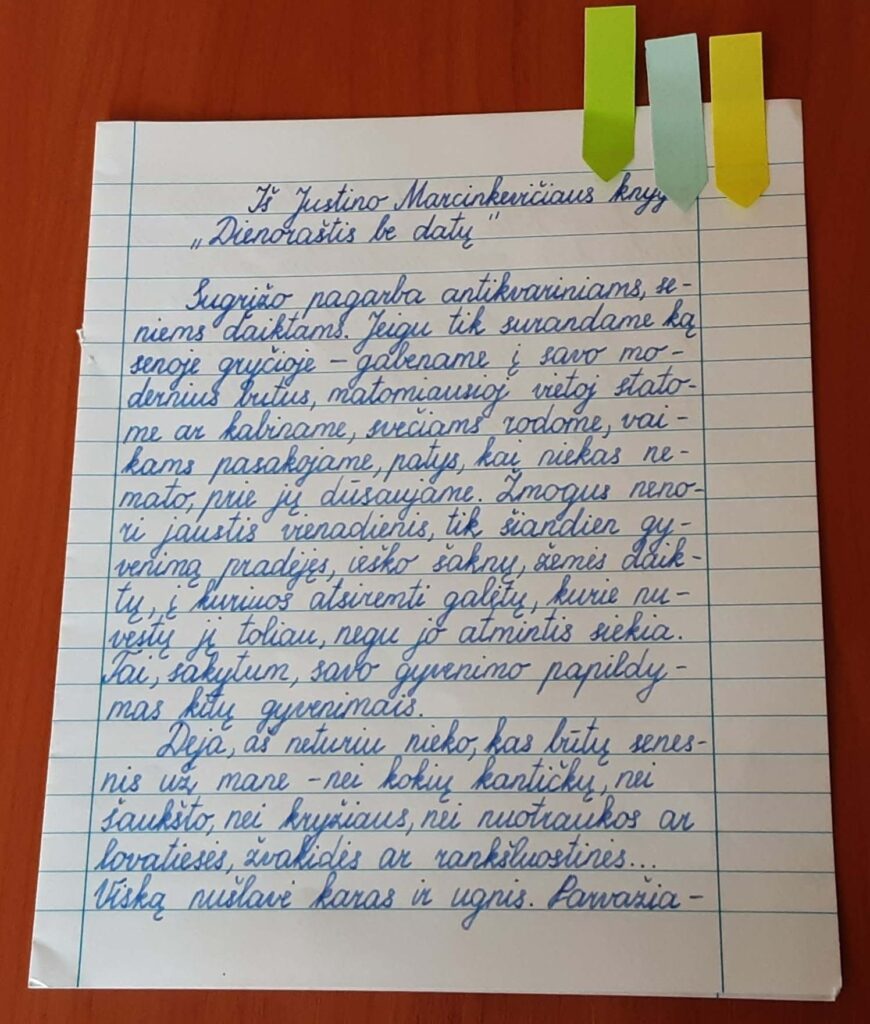 Iš Justino Marcinkevičiaus knyg
„Dienoraštis be datų"
Sugrįžo pagarba antikvariniams, se-
niems daiktams. Jeigu tik surandame ką
senoje gryčioje – gabename į savo mo-
dernius butus, matomiausioj vietoj stato-
me ar kabiname, svečiams rodome, vai-
kams pasakojame, patys, kai niekas ne-
mato, prie jų dūsaujame. Žmogus neno-
ri jaustis vienadienis, tik šiandien gy-
venimą pradėjęs, ieško šaknų, žemės daik-
tų, į kuriuos atsiremti galėtų, kurie nu-
vestų jį toliau, negu jo atmintis siekia.
Tai, sakytum, savo gyvenimo papildy-
mas kitų gyvenimais.
Deja, aš neturiu nieko, kas būtų senes-
nis už mane – nei kokių kantičkų, nei
šaukšto, nei kryžiaus, nei nuotraukos ar
lovatiesės, žvakidės ar rankšluostinės...
Viską nušlavė karas ir ugnis. Parvažia-